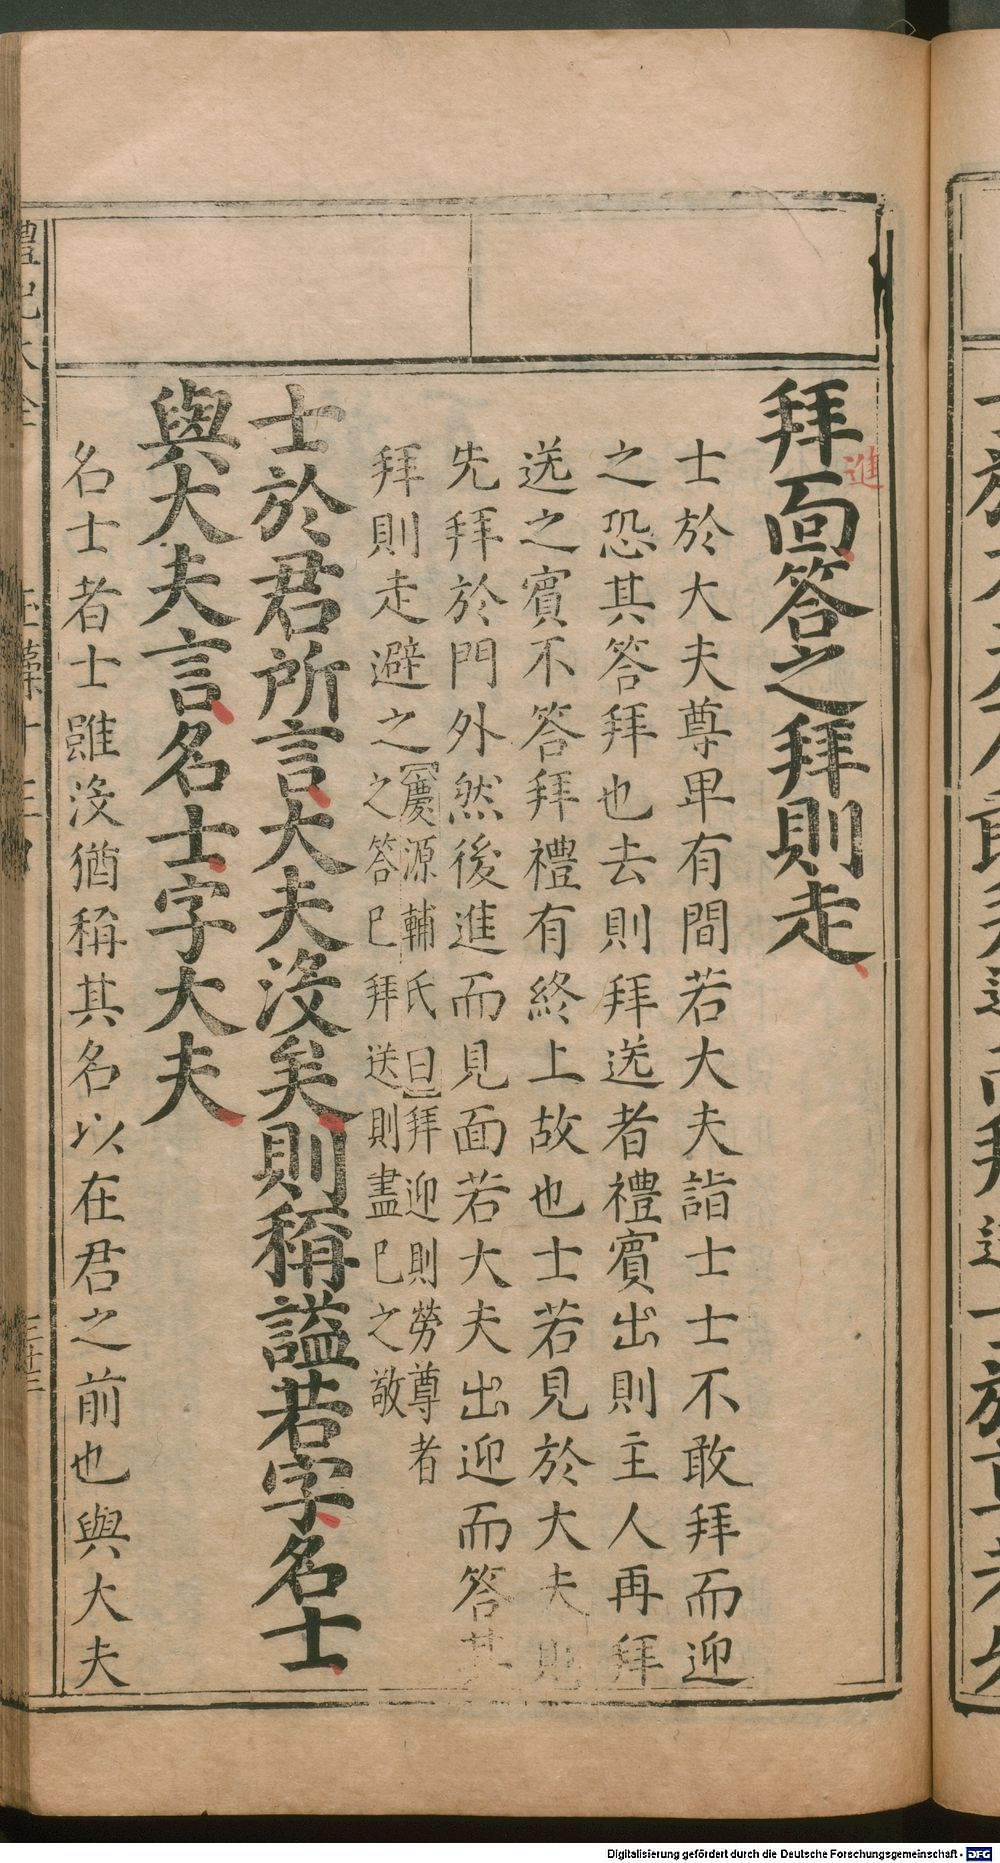 拜面答之拜則走
進
士於大夫尊卑有間若大夫詣士士不敢拜而迎
之恐其答拜也去則拜送者禮賓出則主人再拜
送之賓不答拜禮有終上故也士若見於大夫則
先拜於門外然後進而見面若大夫出迎而答其
拜則走避之
慶源輔氏曰拜迎則勞尊者
之答已拜送則盡已之敬
士於君所言大夫沒矣則稱謚若字名士
與大夫言名士字大夫
名士者士雖沒猶稱其名以在君之前也與大夫
禮記大全
玉藻十三
Digitalisierung gefördert durch die Deutsche Forschungsgemeinschaft - DFG